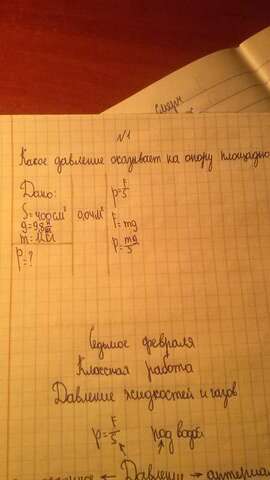 N1
Какое давление оказывает на опору площадью
Дано:
p=F/S
S=400см² 0,04м²
g=9,8
F=mg
m=
p=mg/S
p=?
Седьмое февраля
Классная работа
Давление жидкостей и газов
p=F/S под водой
← Давление →